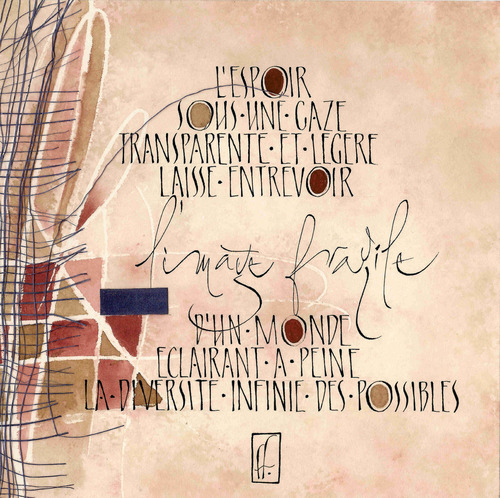 L'ESPOIR
SOUS·UNE·GAZE
TRANSPARENTE·ET·LEGERE
LAISSE·ENTREVOIR
l'image fragile
D'UN·MONDE
ECLAIRANT·A·PEINE
LA·DIVERSITE·INFINIE·DES·POSSIBLES
ff.